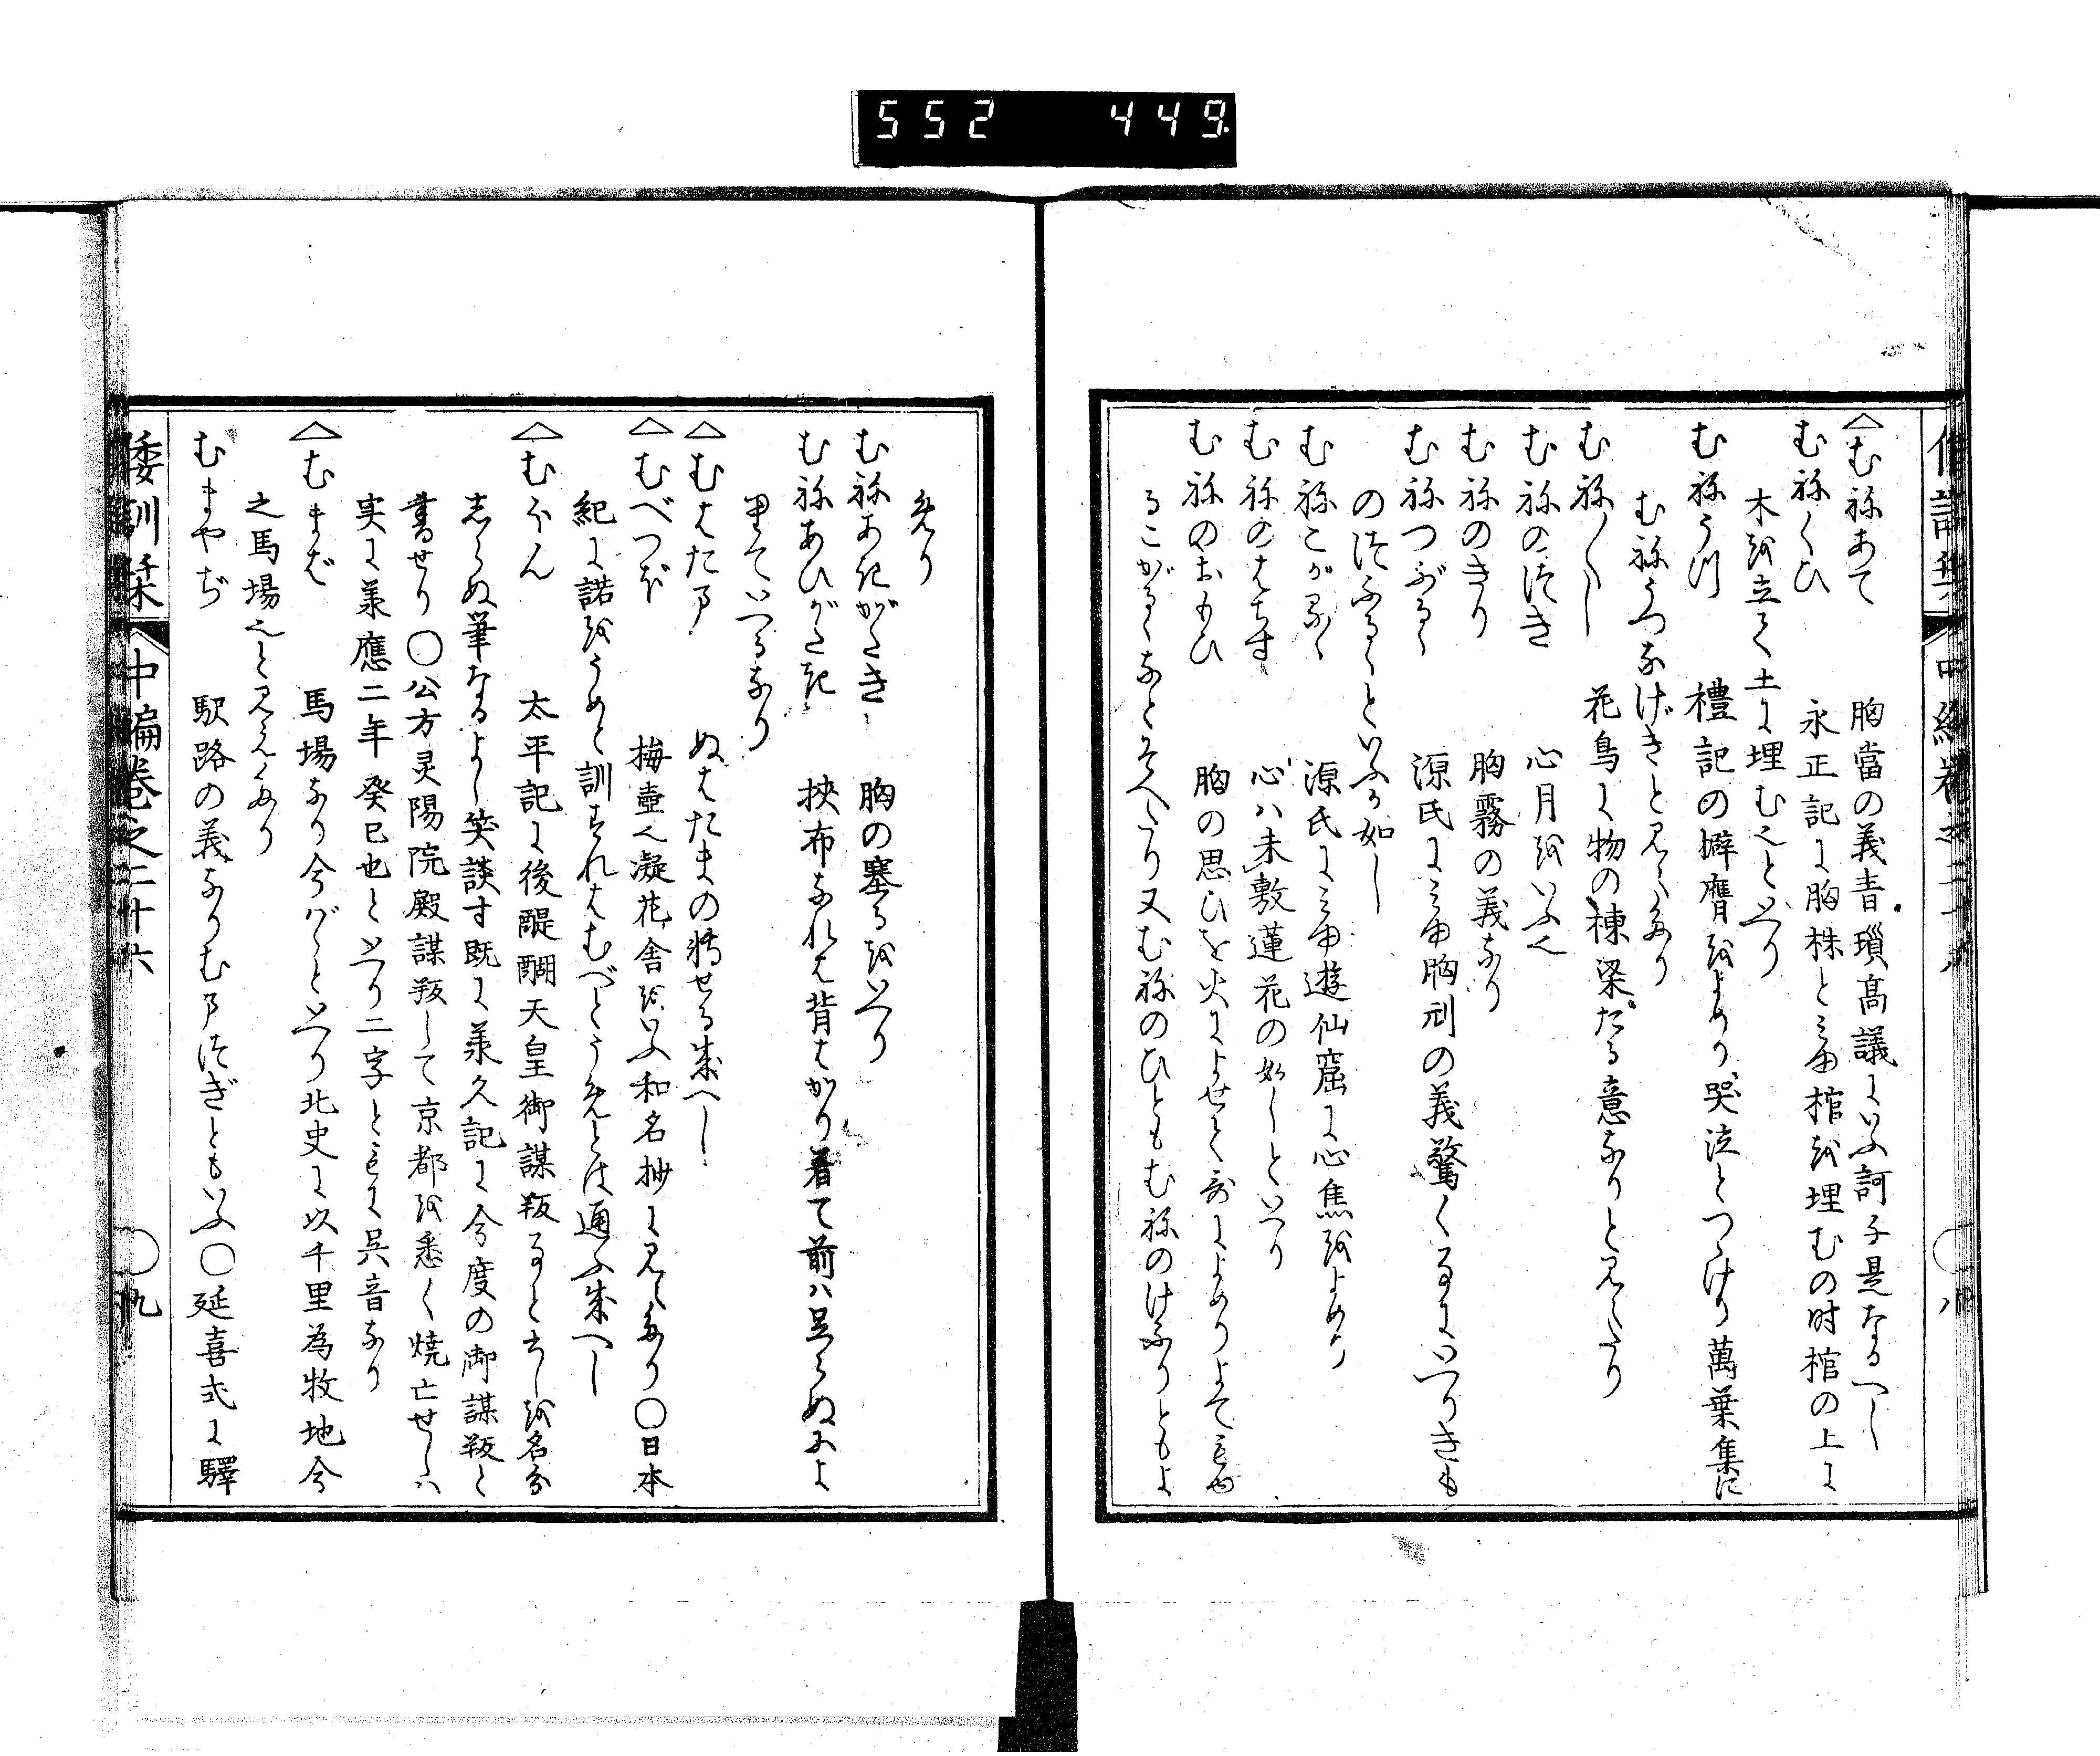 552 449
△むねあて 胸當の義青瑣高議にいふ訶子是なるへし
むねくひ 永正記に胸株と見ゆ棺を埋むの时棺の上に
木を立て土に埋む也といへり
むねうつ 禮記の擗膺をよめり哭泣とつゝけり萬葉集に
むねうつなげきと見えたり
むね〳〵し 花鳥に物の棟梁たる意なりと見えたり
むねのつき 心月をいふ也
むねのきり 胸霧の義なり
むねつぶるゝ 源氏に見ゆ胸刓の義驚くるにいへりきも
のつふるゝといふか如し
むねこがるゝ 源氏に見ゆ遊仙窟に心焦をよめり
むねのはちす 心ハ未敷蓮花の如しといへり
むねのおもひ 胸の思ひを火によせて哥によめりよてもゆ
るこがるゝなとそへたり又むねのひともむねのけふりともよ
めり
むねあきがたき 胸の塞るをいへり
むねあひがたき 挾布なれは背はかり着て前ハ足らぬによ
りていへるなり
△むはたま ぬはたまの轉せる成へし
△むべつぼ 梅壷也凝花舎をいふ和名抄に見えたり〇日本
紀に諾をうめと訓すれはむべとうめとは通ふ成へし
△むほん 太平記に後醍醐天皇御謀叛ると云しを名分
志らぬ筆なるよし笑談す既に承久記に今度の御謀叛と
書せり〇公方灵陽院殿謀叛して京都を悉く焼亡せしハ
実に承應二年癸巳也といへり二字ともに呉音なり
△むまば 馬場なり今ばゝといへり北史に以千里為牧地今
之馬場也と見えたり
むまやぢ 駅路の義なりむまつぎともいふ〇延喜式に驛
倭訓栞 中編巻之二十六 〇九